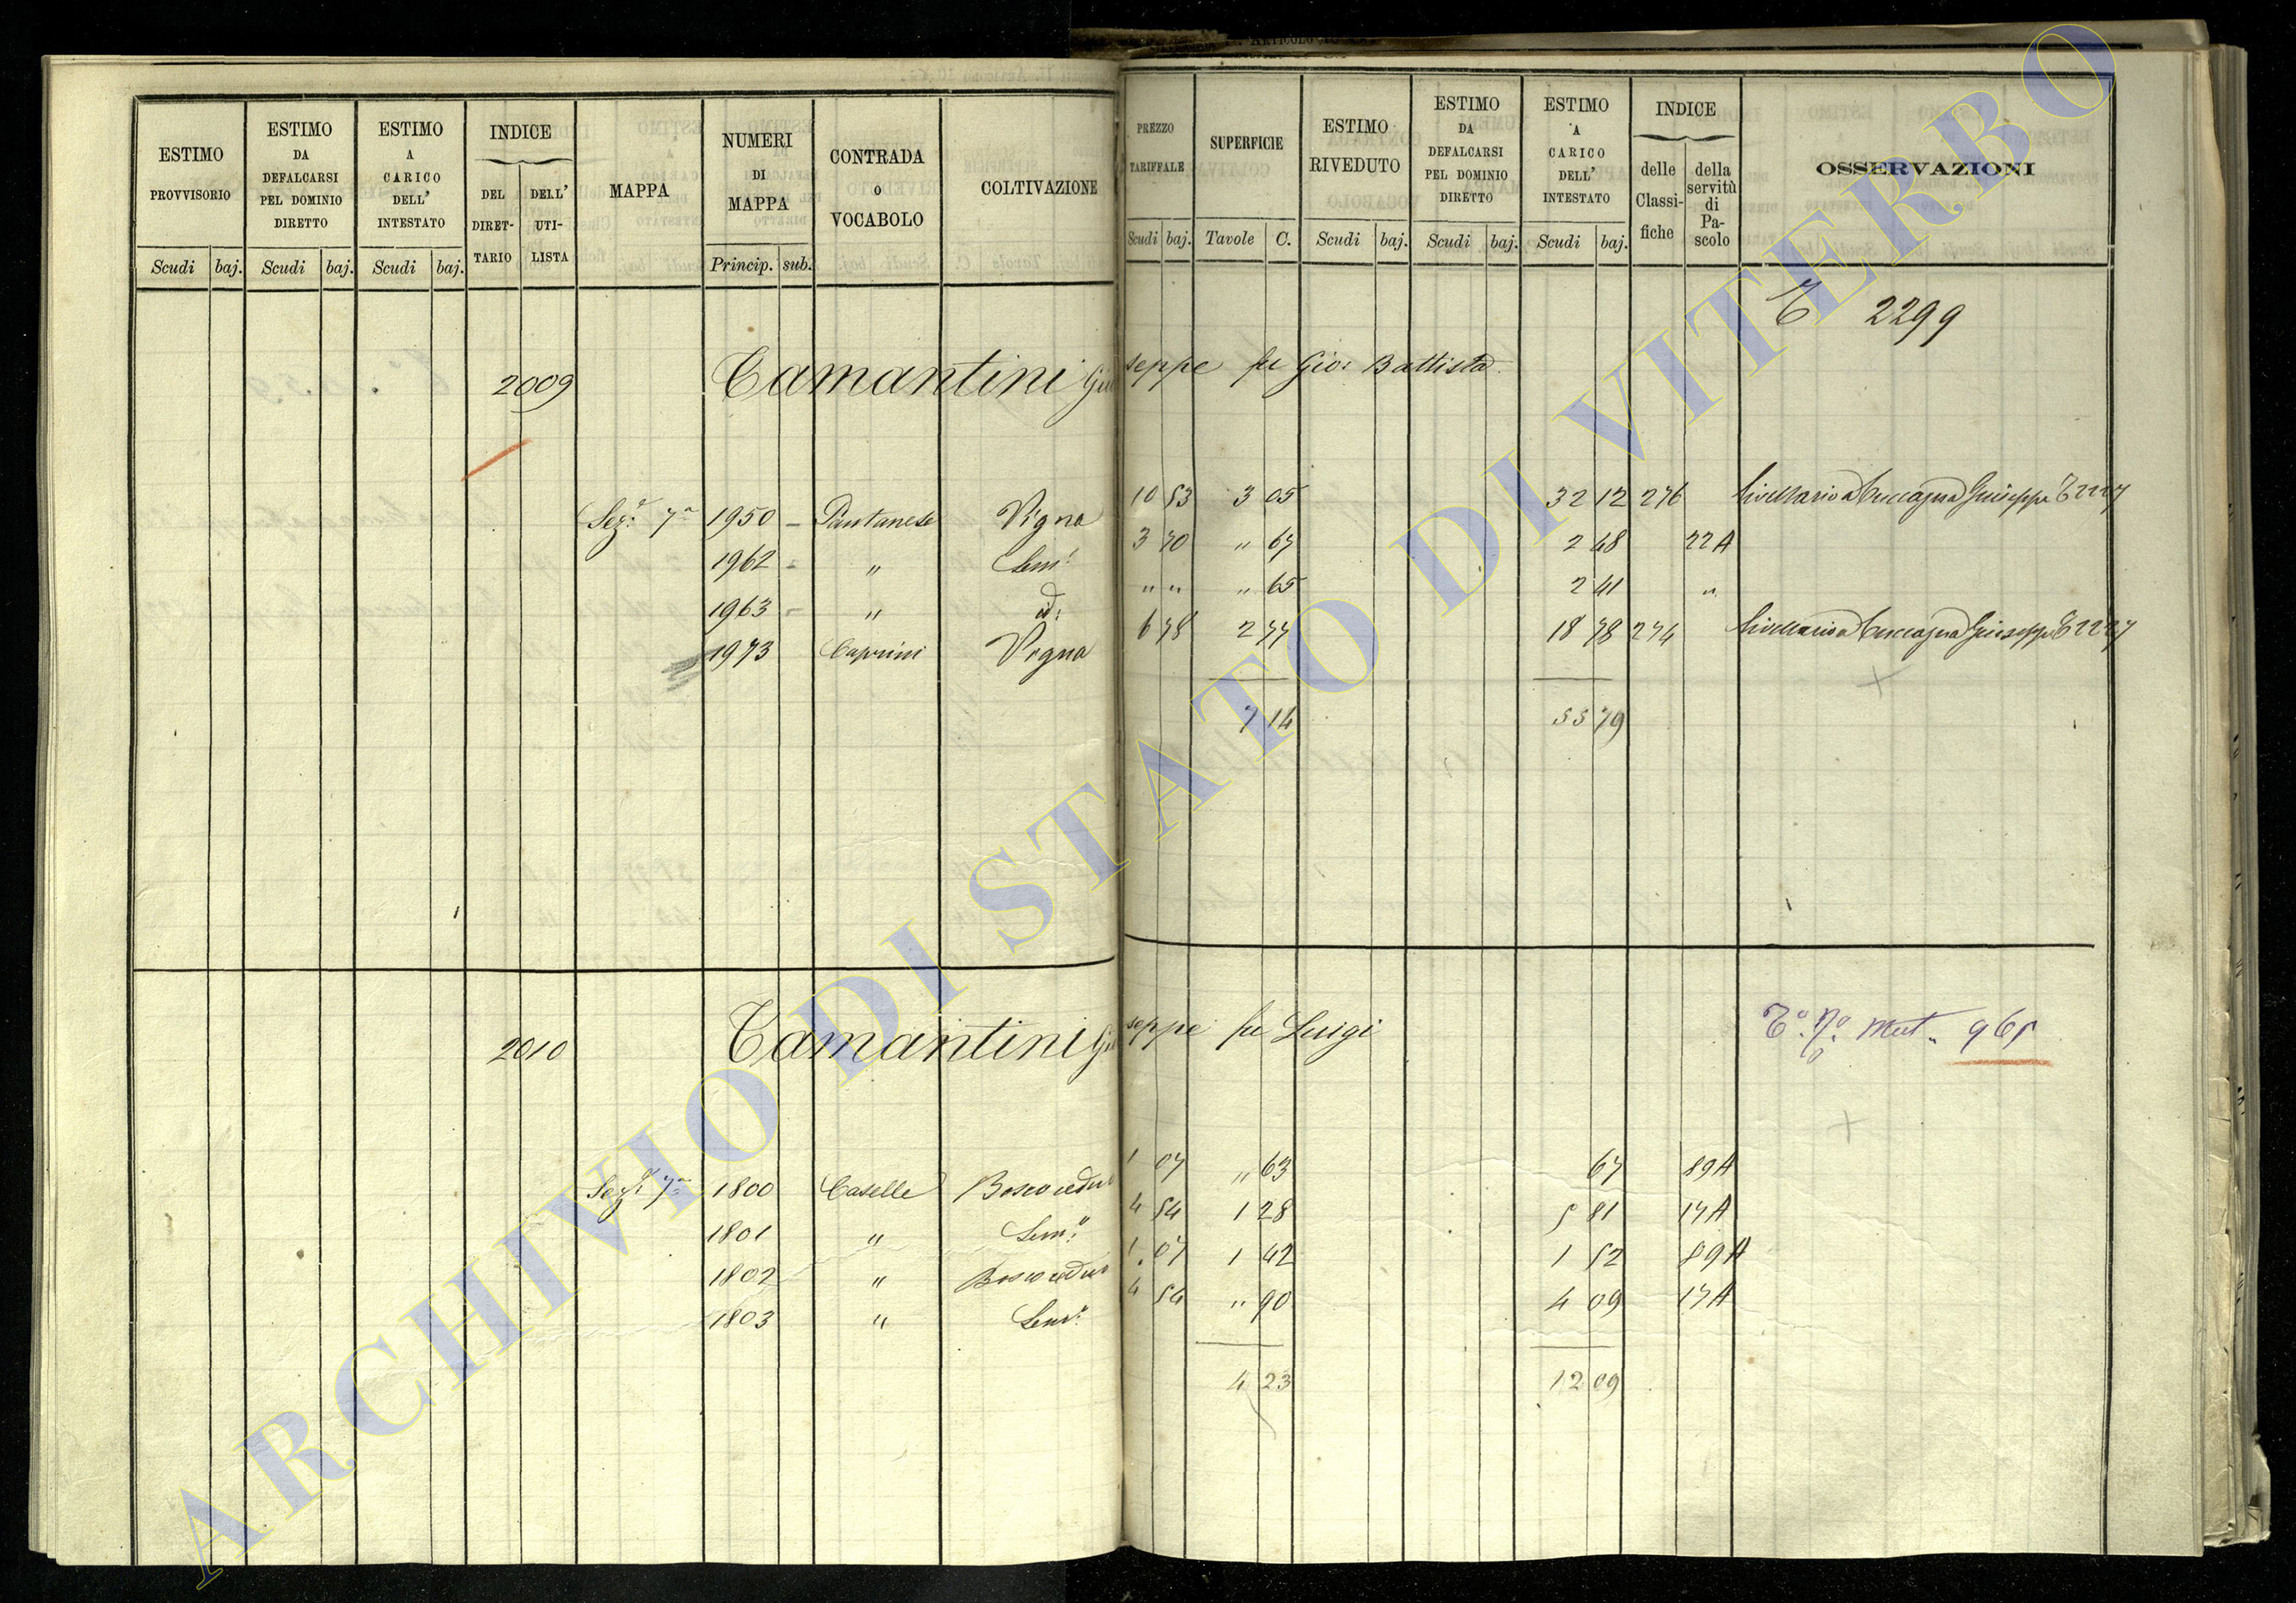 ESTIMO PROVVISORIO | ESTIMO DA DEFALCARSI PEL DOMINIO DIRETTO | ESTIMO A CARICO DELL' INTESTATO | INDICE DEL DIRET-TARIO | DELL' UTI-LISTA | MAPPA | NUMERI DI MAPPA | CONTRADA o VOCABOLO | COLTIVAZIONE | PREZZO TARIFFALE | SUPERFICIE | ESTIMO RIVEDUTO | ESTIMO DA DEFALCARSI PEL DOMINIO DIRETTO | ESTIMO A CARICO DELL' INTESTATO | INDICE delle Classi-fiche | della servitù di Pa-scolo | OSSERVAZIONI
Scudi baj. Scudi baj. Scudi baj. Princip. sub. Scudi baj. Tavole C. Scudi baj. Scudi baj. Scudi baj.
2299
2009 Tamantini Giuseppe fu Gio: Battista
Sez.e 7a 1950 – Pantanese Vigna 10 53 3 05 32 12 276 Livellario a Cuccagna Giuseppe T 2227
1962 – " Sem.o 3 70 " 67 2 48 22A
1963 – " id: " " " 65 2 41 "
1973 Caprini Vigna 6 78 2 77 18 78 274 Livellario a Cuccagna Giuseppe T 2227
7 14 55 79
2010 Tamantini Giuseppe fu Luigi
Mut. 965
Sez.e 7a 1800 Caselle Bosco ceduo 1 07 " 63 67 89A
1801 " Sem.o 4 54 1 28 5 81 17A
1802 " Bosco ceduo 1 07 1 42 1 52 89A
1803 " Sem.o 4 54 " 90 4 09 17A
4 23 12 09
ARCHIVIO DI STATO DI VITERBO